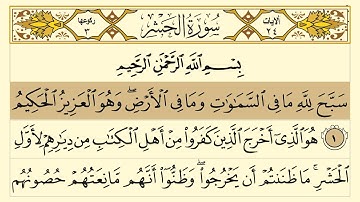 الآيات ٢٤
سُورَةُ الْحَشْرِ
رکوعہا ٣
بِسْمِ اللَّهِ الرَّحْمَٰنِ الرَّحِيمِ
سَبَّحَ لِلَّهِ مَا فِي السَّمَٰوَٰتِ وَمَا فِي الْأَرْضِ ۖ وَهُوَ الْعَزِيزُ الْحَكِيمُ
١ هُوَ الَّذِي أَخْرَجَ الَّذِينَ كَفَرُوا مِنْ أَهْلِ الْكِتَٰبِ مِن دِيَٰرِهِمْ لِأَوَّلِ
الْحَشْرِ ۚ مَا ظَنَنتُمْ أَن يَخْرُجُوا ۖ وَظَنُّوا أَنَّهُم مَّانِعَتُهُمْ حُصُونُهُم